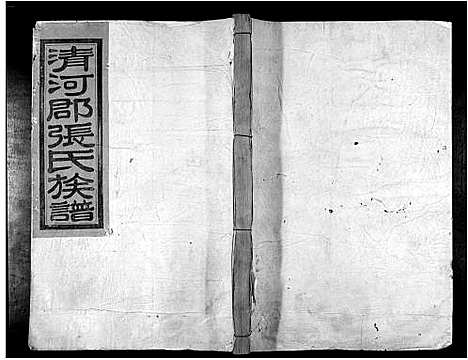 清河郡張氏族譜